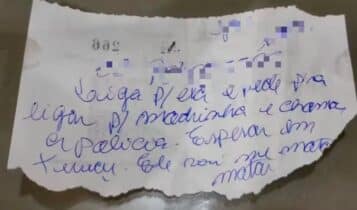 Liga p/ ela e pede pra
ligar p/ madrinha e chama
a policia. Esperar em
Ele vai me mata
matar